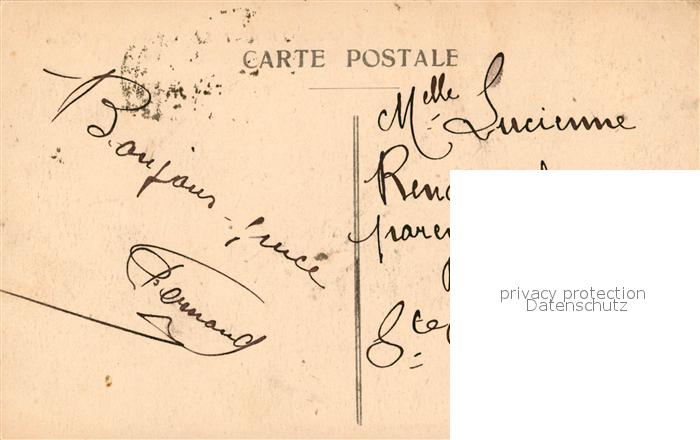 CARTE POSTALE
Bonjour
Fernand
Melle Lucienne
Ren
paren
Ste
privacy protection
Datenschutz